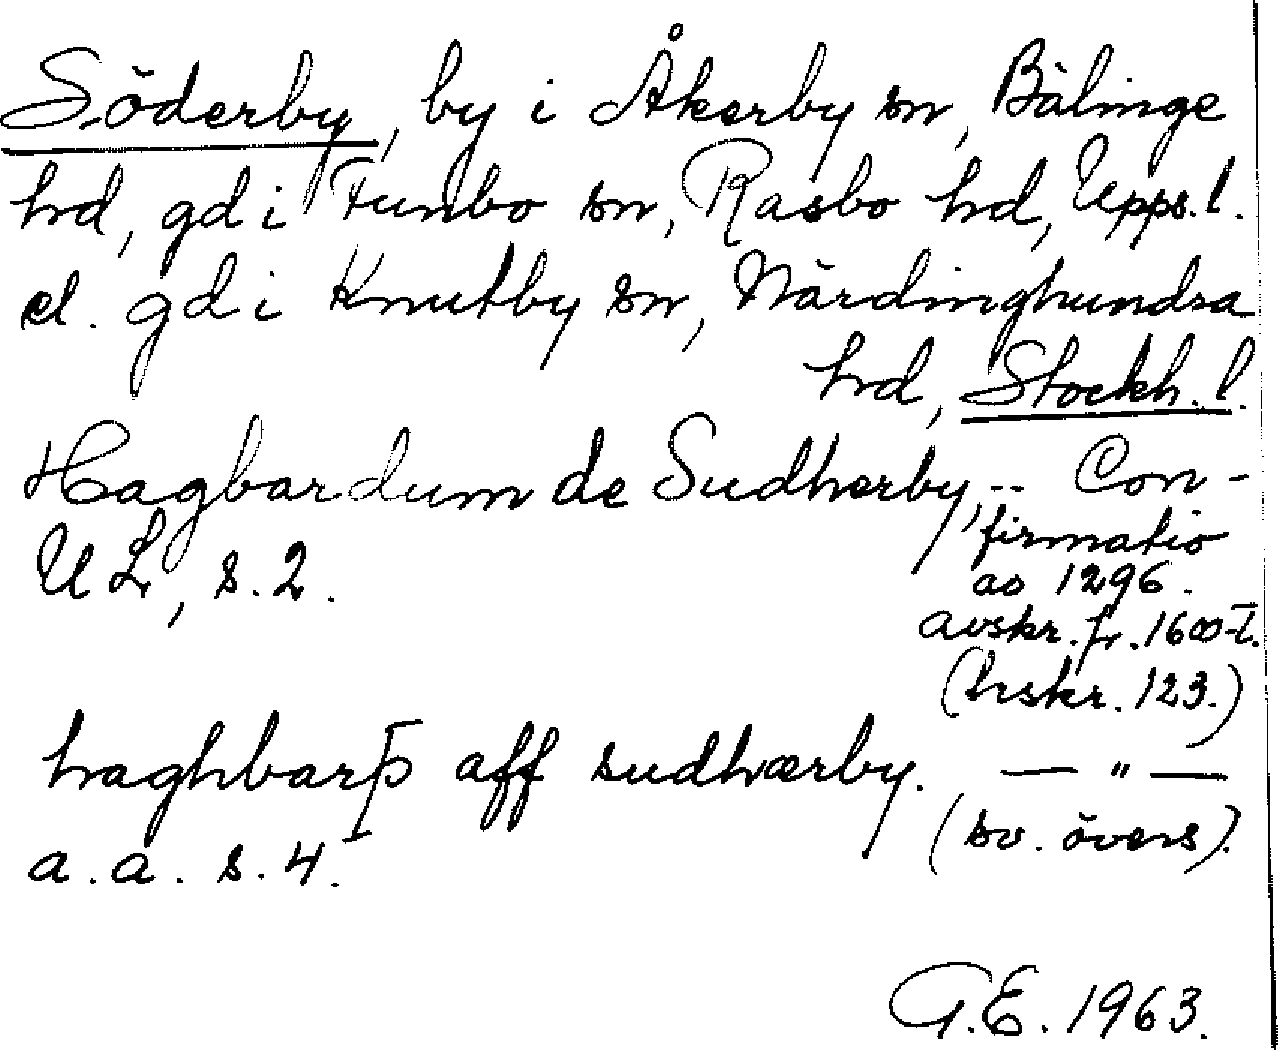 Söderby, by i Åkerby sn, Bälinge
hrd, gd i Funbo sn, Rasbo hrd, Upps. l.
el. gd i Knutby sn, Närdinghundra
hrd, Stockh. l.
Hagbardum de Sudherby, -- Con-
firmatio
UL, s. 2.
ao 1296.
avskr. fr. 1600-t.
(hskr. 123.)
haghbarþ aff sudhærby. — " —
a. a. s. 4.
(sv. övers).
G.E. 1963.